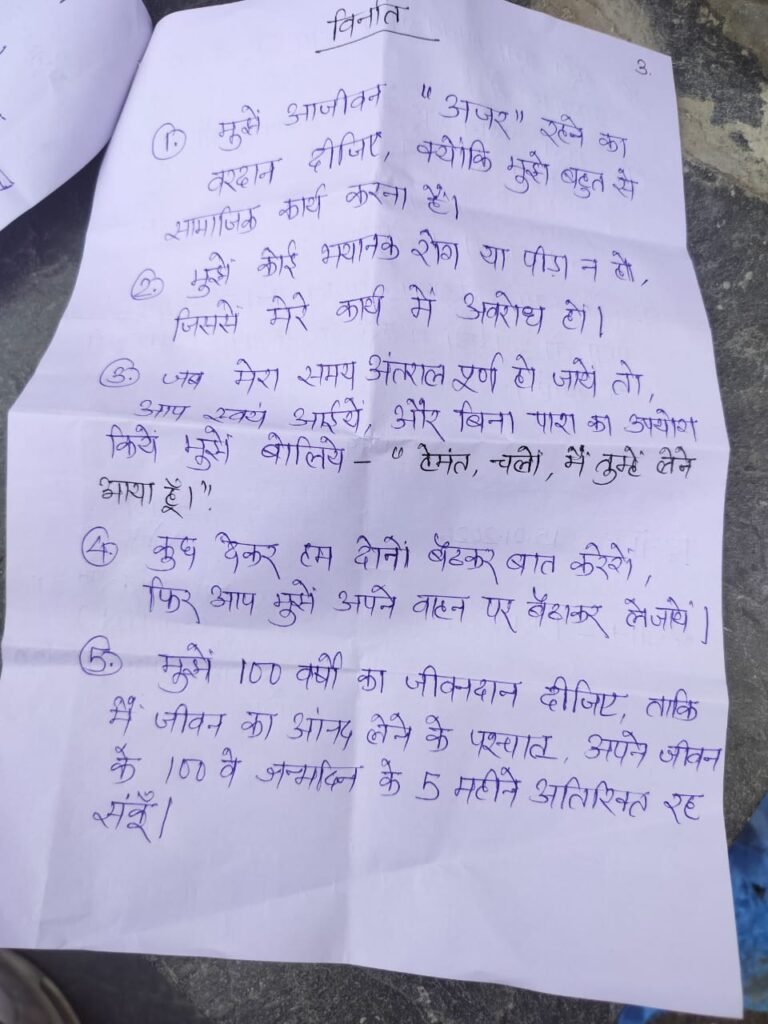 विनति
3.
1. मुझें आजीवन "अजर" रहने का
वरदान दीजिए, क्योंकि मुझे बहुत से
सामाजिक कार्य करना हैं।
2. मुझें कोई भयानक रोग या पीड़ा न हो,
जिससें मेरे कार्य में अवरोध हों।
3. जब मेरा समय अंतराल पूर्ण हो जायें तो,
आप स्वयं आईयें, और बिना पाश का उपयोग
कियें मुझें बोलिये - "हेमंत, चलों, मैं तुम्हें लेने
आया हूँ।"
4. कुछ देकर हम दोनों बैठकर बात करेगें,
फिर आप मुझें अपने वाहन पर बैठाकर लेजायें।
5. मुझें 100 वर्षों का जीवनदान दीजिए, ताकि
मैं जीवन का आंनद लेने के पश्चात, अपने जीवन
के 100 वे जन्मदिन के 5 महीने अतिरिक्त रह
संकूँ।